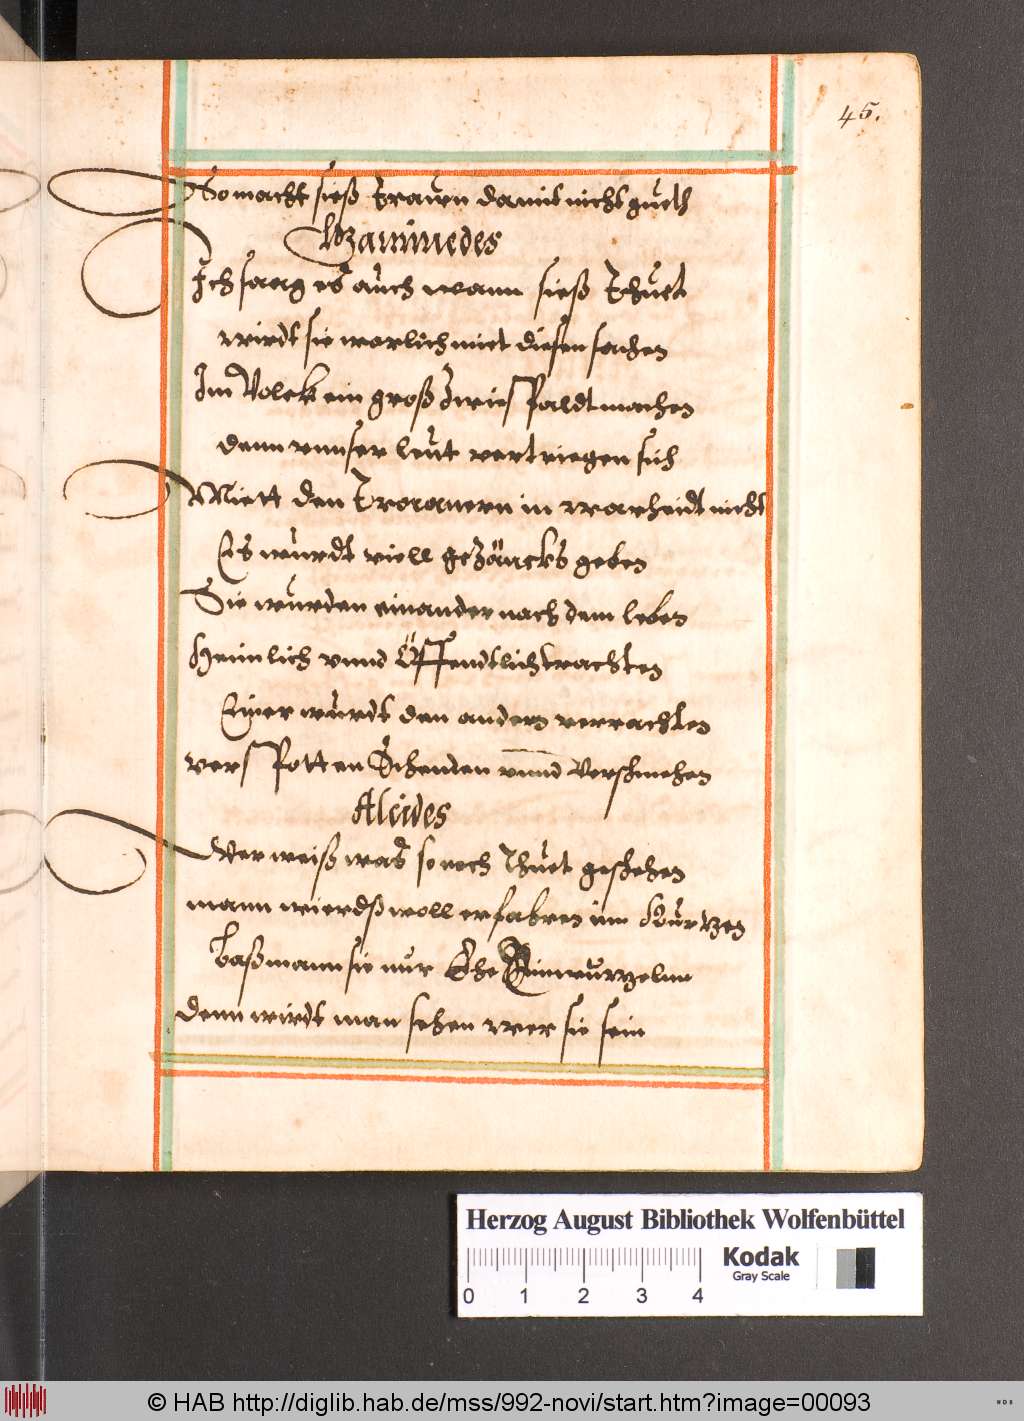 45.
So macht sieß Frauen damit nicht gueth
Ganimedes
Ich saag es auch wann sieß Thuet
wirdt sie warlich miet diesen sachen
Im Volck ein groß Zwiespaldt machen
denn vnnser leut vertriegen sich
Miett den Troianern in warheidt nicht
Es wurdt viell gezäncks geben
Sie wurden einander nach dem leben
Heimlich vnnd Öffendtlich trachten
Einer wurdt den andern verrachten
verspotten Schenden vnnd Verschmehen
Alcides
Wer weiß was so noch Thuet geschehen
mann wierdß woll erfahren inn Kurtzen
Laß mann sie nur Ehe Einwurtzelnn
denn wirdt man sehen wer sie sein
Herzog August Bibliothek Wolfenbüttel
Kodak
Gray Scale
0 1 2 3 4
© HAB http://diglib.hab.de/mss/992-novi/start.htm?image=00093